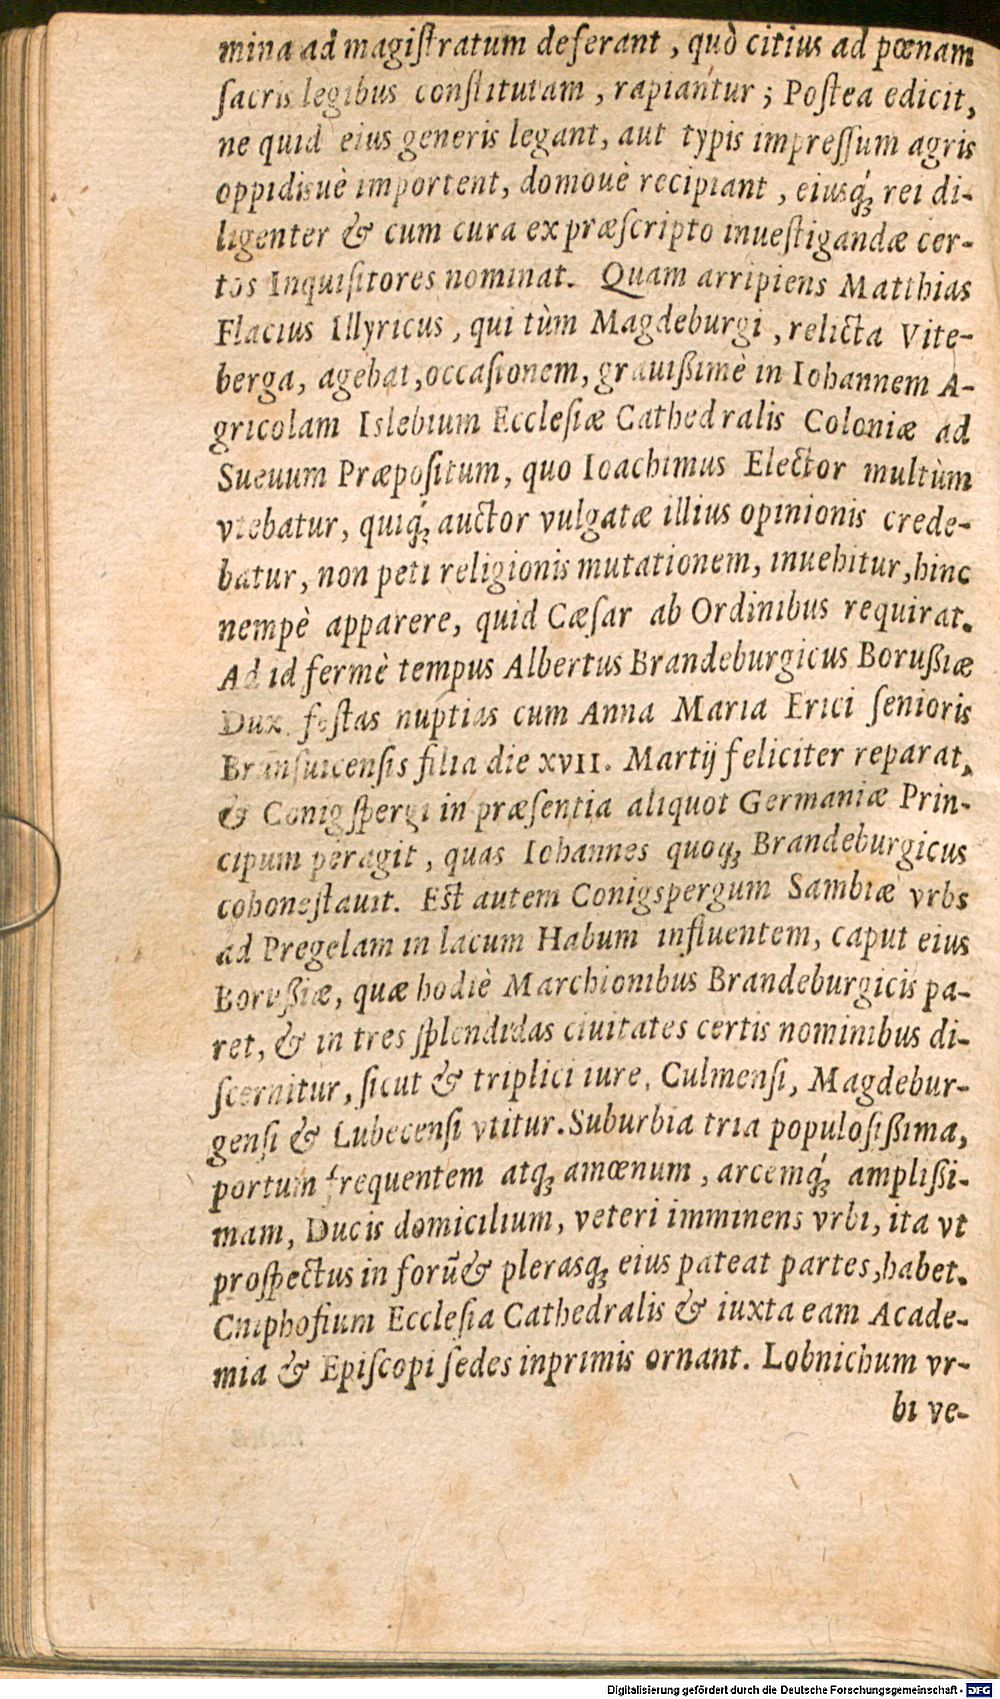 mina ad magiſtratum deferant, quò citius ad pœnam
ſacris legibus conſtitutam, rapiantur; Poſtea edicit,
ne quid eius generis legant, aut typis impreſſum agris
oppidisuè importent, domouè recipiant, eiusq́ꝫ rei di-
ligenter & cum cura ex præſcripto inueſtigandæ cer-
tos Inquiſitores nominat. Quam arripiens Matthias
Flacius Illyricus, qui tùm Magdeburgi, relicta Vite-
berga, agebat, occaſionem, grauißimè in Iohannem A-
gricolam Islebium Eccleſiæ Cathedralis Coloniæ ad
Sueuum Præpoſitum, quo Ioachimus Elector multùm
vtebatur, quiq́ꝫ auctor vulgatæ illius opinionis crede-
batur, non peti religionis mutationem, inuehitur, hinc
nempè apparere, quid Cæſar ab Ordinibus requirat.
Ad id fermè tempus Albertus Brandeburgicus Borußiæ
Dux feſtas nuptias cum Anna Maria Erici ſenioris
Branſuicenſis filia die XVII. Martij feliciter reparat,
& Conigſpergi in præſentia aliquot Germaniæ Prin-
cipum peragit, quas Iohannes quoqꝫ Brandeburgicus
cohoneſtauit. Eſt autem Conigspergum Sambiæ vrbs
ad Pregelam in lacum Habum influentem, caput eius
Borußiæ, quæ hodiè Marchionibus Brandeburgicis pa-
ret, & in tres ſplendidas ciuitates certis nominibus di-
ſcernitur, ſicut & triplici iure, Culmenſi, Magdebur-
genſi & Lubecenſi vtitur. Suburbia tria populoſißima,
portum frequentem atqꝫ amœnum, arcemq́ꝫ amplißi-
mam, Ducis domicilium, veteri imminens vrbi, ita vt
proſpectus in forū & plerasqꝫ eius pateat partes, habet.
Cniphofium Eccleſia Cathedralis & iuxta eam Acade-
mia & Epiſcopi ſedes inprimis ornant. Lobnichum vr-
bi ve-
Digitalisierung gefördert durch die Deutsche Forschungsgemeinschaft - DFG